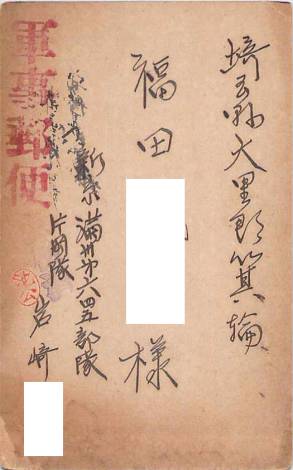 埼玉縣大里郡箕輪
福田
様
新京
満州第六四五部隊
片岡隊
岩﨑
軍事郵便